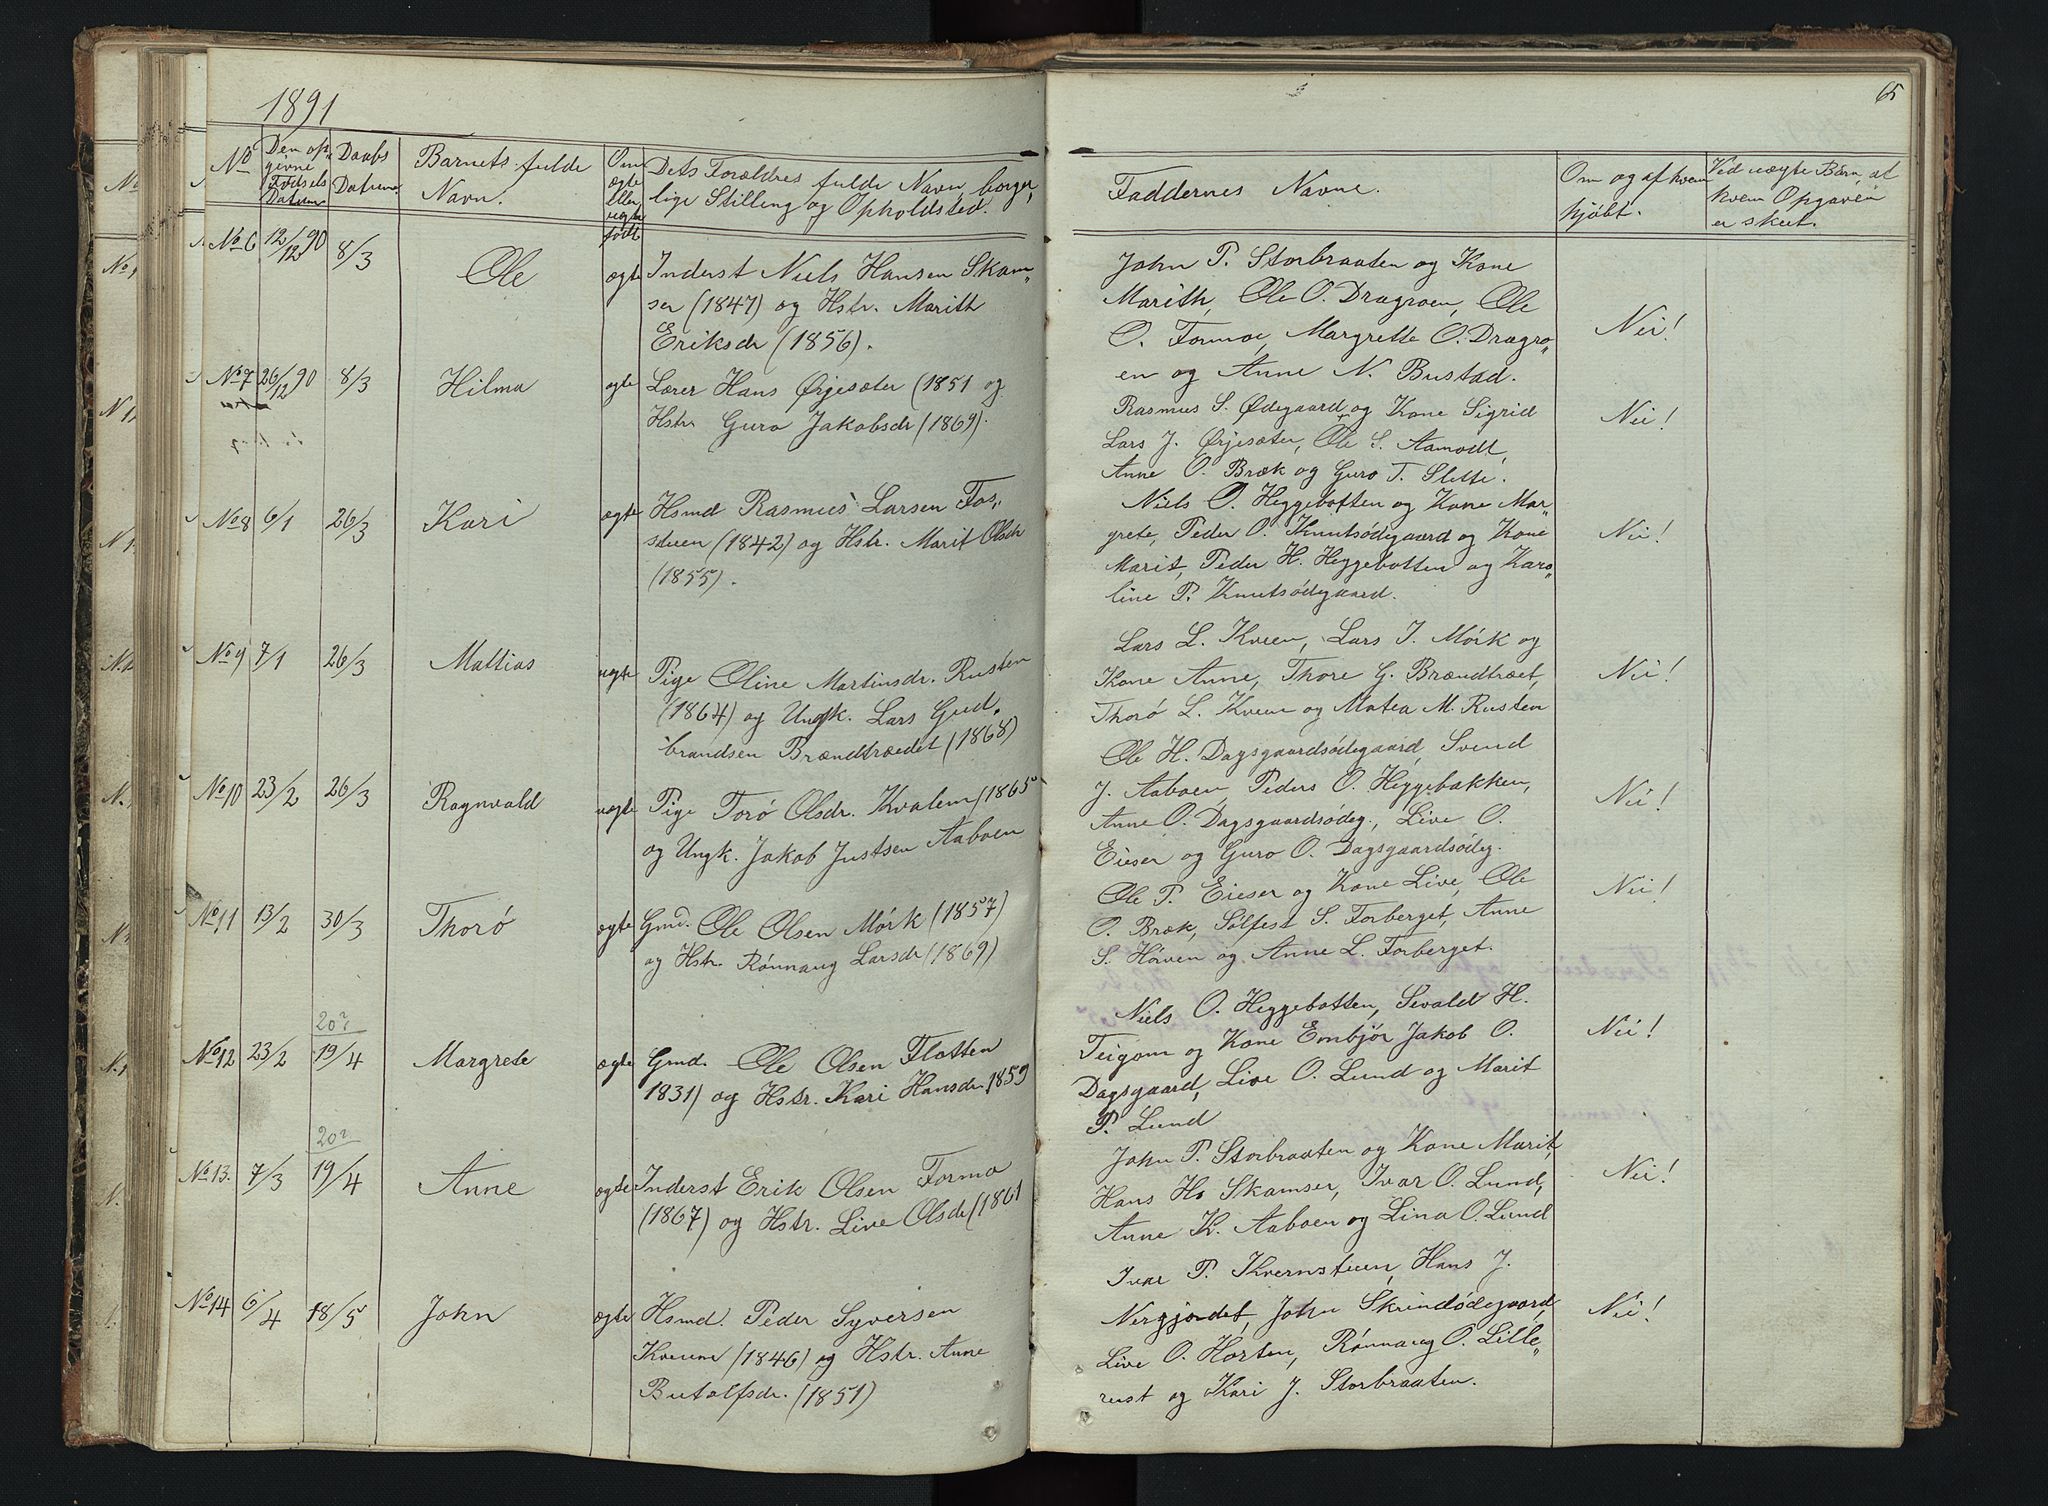 1891
65
No
Den op-
givne
Fødsels
Datum
Daabs
Datum.
Barnets fulde
Navn.
Om
ægte
eller
uægte
født
Dets Forældres fulde Navn, borger,
lige Stilling og Opholdsted.
Faddernes Navne.
Om og af hvem
hjøbt.
Ved uægte Børn, at
hvem Opgaven
er skeet.
No 6 12/12 90 8/3 Ole ægte Inderst Niels Hansen Skam„
ser (1847) og Hstr. Marith
Eriksdr (1856).
John P. Storbraaten og Kone
Marith, Ole O. Dragroen, Ole
O. Formoe, Margrette O. Dragro„
en og Anne N. Bustad.
Nei!
No 7 26/12 90 8/3 Hilma ægte Lærer Hans Ørjesæter (1851 og
Hstr. Guro Jakobsdr (1869).
Rasmus S. Ødegaard og Kone Sigrid
Lars J. Ørjesæter, Ole S. Aamodt,
Anne O. Bræk og Guro T. Slette.
Nei!
No 8 6/1 26/3 Kari ægte Hsmd Rasmus Larsen Fos„
steen (1842) og Hstr. Marit Olsdr
(1855).
Niels O. Heggebotten og Kone Mar„
grete, Peder O. Knutsødegaard og Kone
Marit, Peder H. Heggebotten og Karo„
line P. Knutsødegaard.
Nei!
No 9 7/1 26/3 Mattias uægte Pige Oline Martinsdr. Rusten
(1864) og Ungk. Lars Gud„
brandsen Brændtrædet (1868)
Lars L. Kveen, Lars J. Mörk og
Kone Anne, Thore G. Brændtræet,
Thorø L. Kveen og Matea M. Rusten
Nei!
No 10 23/2 26/3 Ragnvald uægte Pige Torø Olsdr. Kvalem (1865
og Ungk. Jakob Justsen Aaboen
Ole H. Dagsgaardsödegaard, Svend
J. Aaboen, Peders O. Heggebakken,
Anne O. Dagsgaardsödeg., Live O.
Eieser og Guro O. Dagsgaardsödeg.
Nei!
No 11 13/2 30/3 Thorö ægte Gmd. Ole Olsen Mörk (1857)
og Hstr. Rönnaug Larsdr (1869)
Ole P. Eieser og Kone Live, Ole
O. Bræk, Sölfest S. Forberget, Anne
S. Höiven og Anne L. Forberget.
Nei!
20?
No 12 23/2 19/4 Margrete ægte Gmd. Ole Olsen Flatten
1831) og Hstr. Kari Hansdr 1859
Niels O. Heggebotten, Sevald H.
Teigom og Kone Embjör Jakob O.
Dagsgaard, Live O. Lund og Marit
P. Lund
Nei!
20?
No 13. 7/3 19/4 Anne ægte Inderst Erik Olsen Formo
(1867) og Hstr. Live Olsdr (1861
John P. Storbraaten og Kone Marit,
Hans H. Skamser, Ivar O. Lund,
Anne K. Aaboen og Lina O. Lund
Nei!
No 14 6/4 18/5 John ægte Hsmd. Peder Syversen
Kveene (1846) og Hstr. Anne
Botolfsdr. (1851)
Ivar P. Kvernsteen, Hans J.
Nergjordet, John Skrindödegaard,
Live O. Horten, Rönnaug O. Lille„
rust og Kari J. Storbraaten.
Nei!